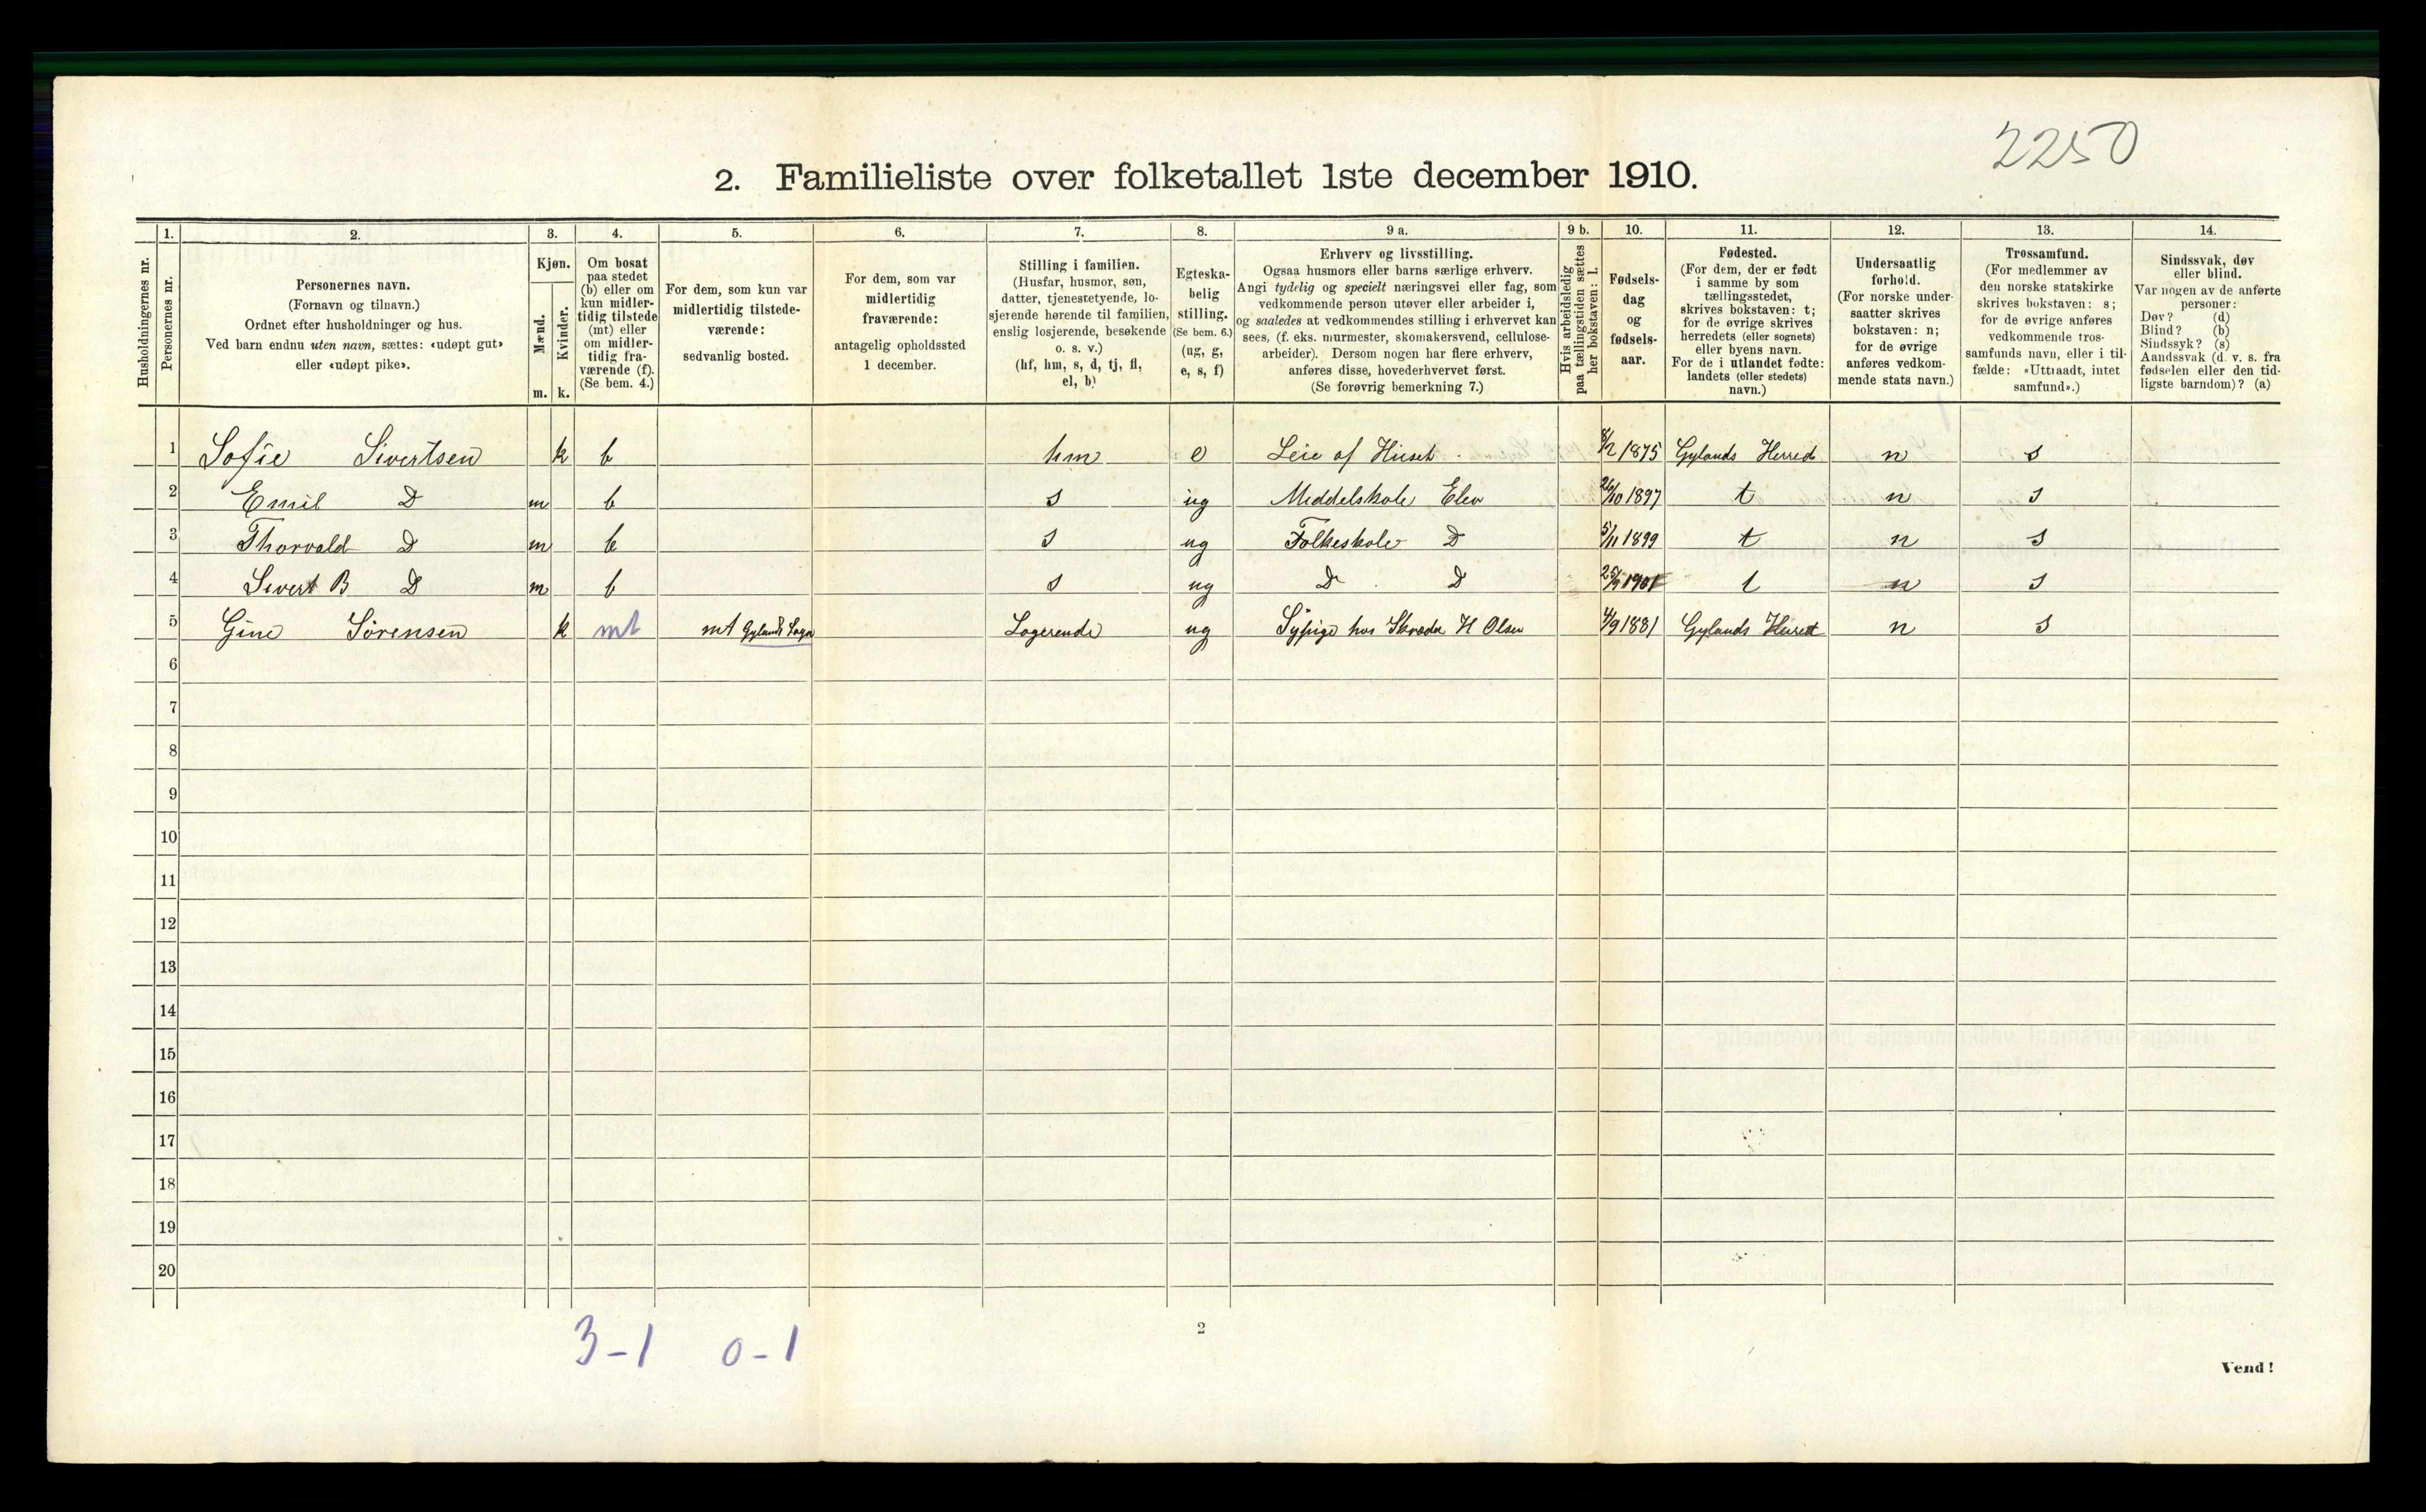 2250
2. Familieliste over folketallet 1ste december 1910.
1. 2. 3. 4. 5. 6. 7. 8. 9 a. 9 b. 10. 11. 12. 13. 14.
Husholdningernes nr.
Personernes nr.
Personernes navn.
(Fornavn og tilnavn.)
Ordnet efter husholdninger og hus.
Ved barn endnu uten navn, sættes: «udøpt gut»
eller «udøpt pike».
Kjøn.
Mænd.
Kvinder.
m. k.
Om bosat
paa stedet
(b) eller om
kun midler-
tidig tilstede
(mt) eller
om midler-
tidig fra-
værende (f).
(Se bem. 4.)
For dem, som kun var
midlertidig tilstede-
værende:
sedvanlig bosted.
For dem, som var
midlertidig
fraværende:
antagelig opholdssted
1 december.
Stilling i familien.
(Husfar, husmor, søn,
datter, tjenestetyende, lo-
sjerende hørende til familien,
enslig losjerende, besøkende
o. s. v.)
(hf, hm, s, d, tj, fl,
el, b)
Egteska-
belig
stilling.
(Se bem. 6.)
(ug, g,
e, s, f)
Erhverv og livsstilling.
Ogsaa husmors eller barns særlige erhverv.
Angi tydelig og specielt næringsvei eller fag, som
vedkommende person utøver eller arbeider i,
og saaledes at vedkommendes stilling i erhvervet kan
sees, (f. eks. murmester, skomakersvend, cellulose-
arbeider). Dersom nogen har flere erhverv,
anføres disse, hovederhvervet først.
(Se forøvrig bemerkning 7.)
Hvis arbeidsledig
paa tællingstiden sættes
her bokstaven: l.
Fødsels-
dag
og
fødsels-
aar.
Fødested.
(For dem, der er født
i samme by som
tællingsstedet,
skrives bokstaven: t;
for de øvrige skrives
herredets (eller sognets)
eller byens navn.
For de i utlandet fødte:
landets (eller stedets)
navn.)
Undersaatlig
forhold.
(For norske under-
saatter skrives
bokstaven: n;
for de øvrige
anføres vedkom-
mende stats navn.)
Trossamfund.
(For medlemmer av
den norske statskirke
skrives bokstaven: s;
for de øvrige anføres
vedkommende tros-
samfunds navn, eller i til-
fælde: «Uttraadt, intet
samfund».)
Sindssvak, døv
eller blind.
Var nogen av de anførte
personer:
Døv? (d)
Blind? (b)
Sindssyk? (s)
Aandssvak (d. v. s. fra
fødselen eller den tid-
ligste barndom)? (a)
1 Sofie Sivertsen k b hm e Leie af Huset 8/2 1875 Gylands Herred n s
2 Emil D m b s ug Middelskole Elev 26/10 1897 t n s
3 Thorvald D m b s ug Folkeskole D 5/11 1899 t n s
4 Sivert B D m b s ug D D 25/9 1901 t n s
5 Gine Sörensen k mt mt Gylands Sogn Logerende ug Sypige hos Skræder H Olsen 4/9 1881 Gylands Herred n s
6
7
8
9
10
11
12
13
14
15
16
17
18
19
20
3-1 0-1
2
Vend!